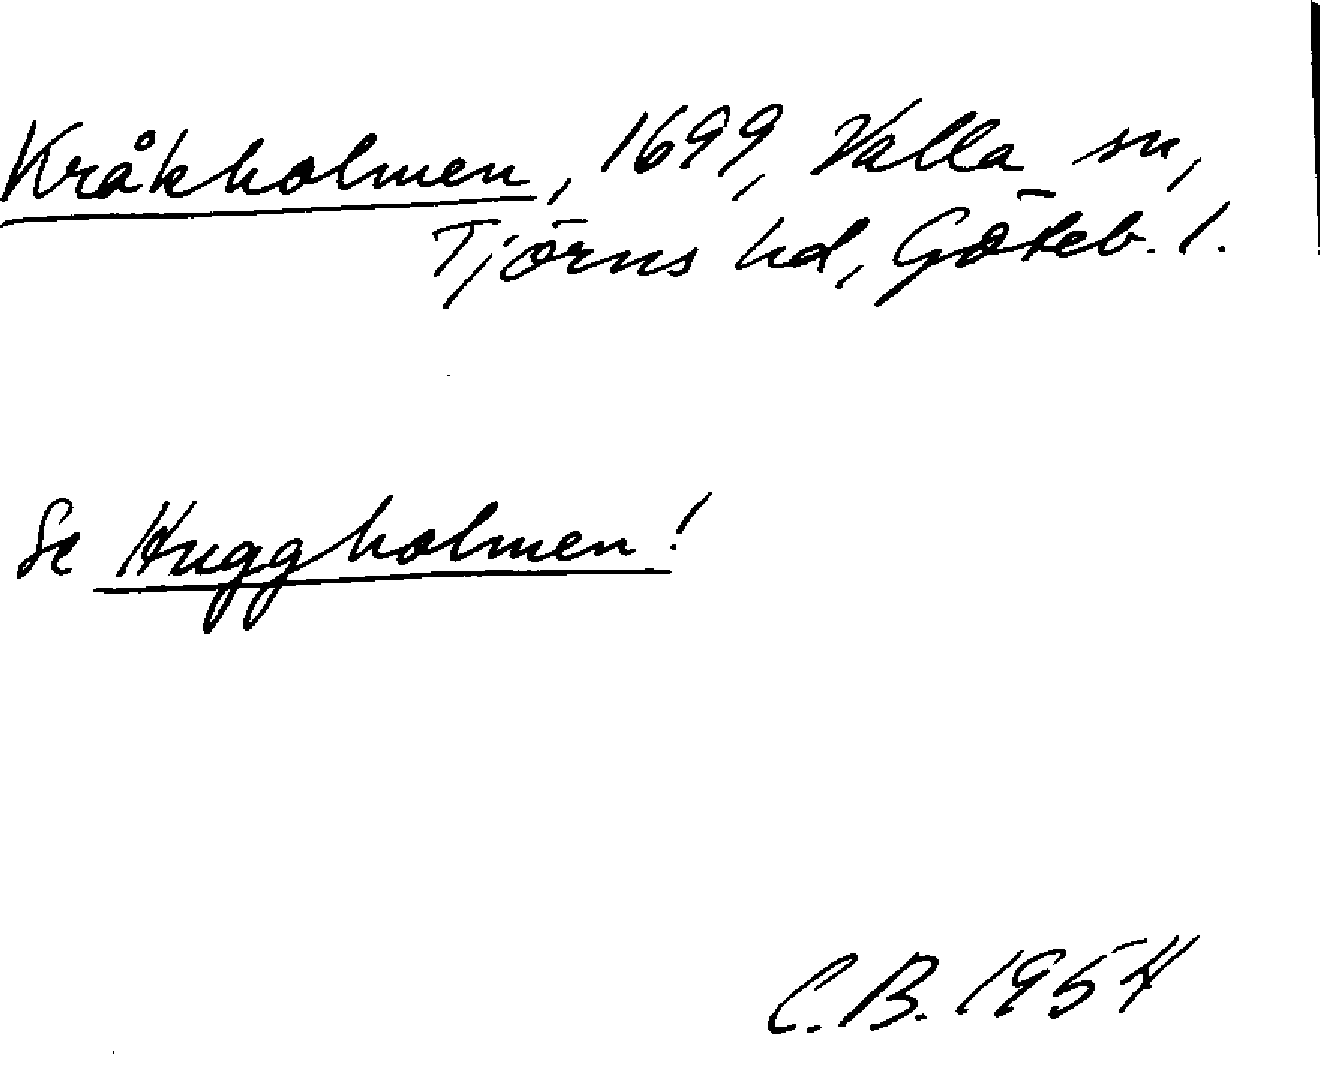 Kråkholmen, 1699, Valla sn,
Tjörns hd, Göteb. l.
Se Huggholmen!
C.B. 1954